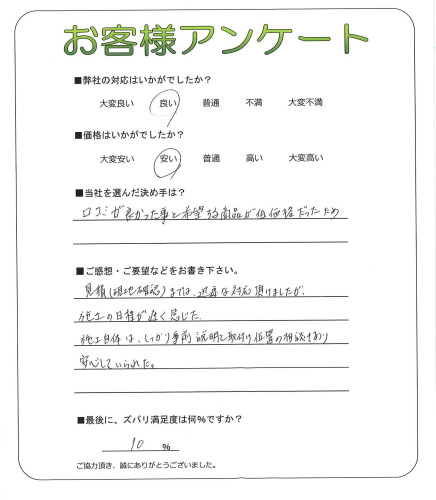 お客様アンケート
■弊社の対応はいかがでしたか？
大変良い 良い 普通 不満 大変不満
■価格はいかがでしたか？
大変安い 安い 普通 高い 大変高い
■当社を選んだ決め手は？
口コミが良かった事と希望する商品が低価格だったため
■ご感想・ご要望などをお書き下さい。
見積(現地確認)までは、迅速な対応頂けましたが、
施工の日程が遅く感じた。
施工自体は、しっかり事前説明と取付け位置の相談もあり
安心していられた。
■最後に、ズバリ満足度は何%ですか？
10 %
ご協力頂き、誠にありがとうございました。